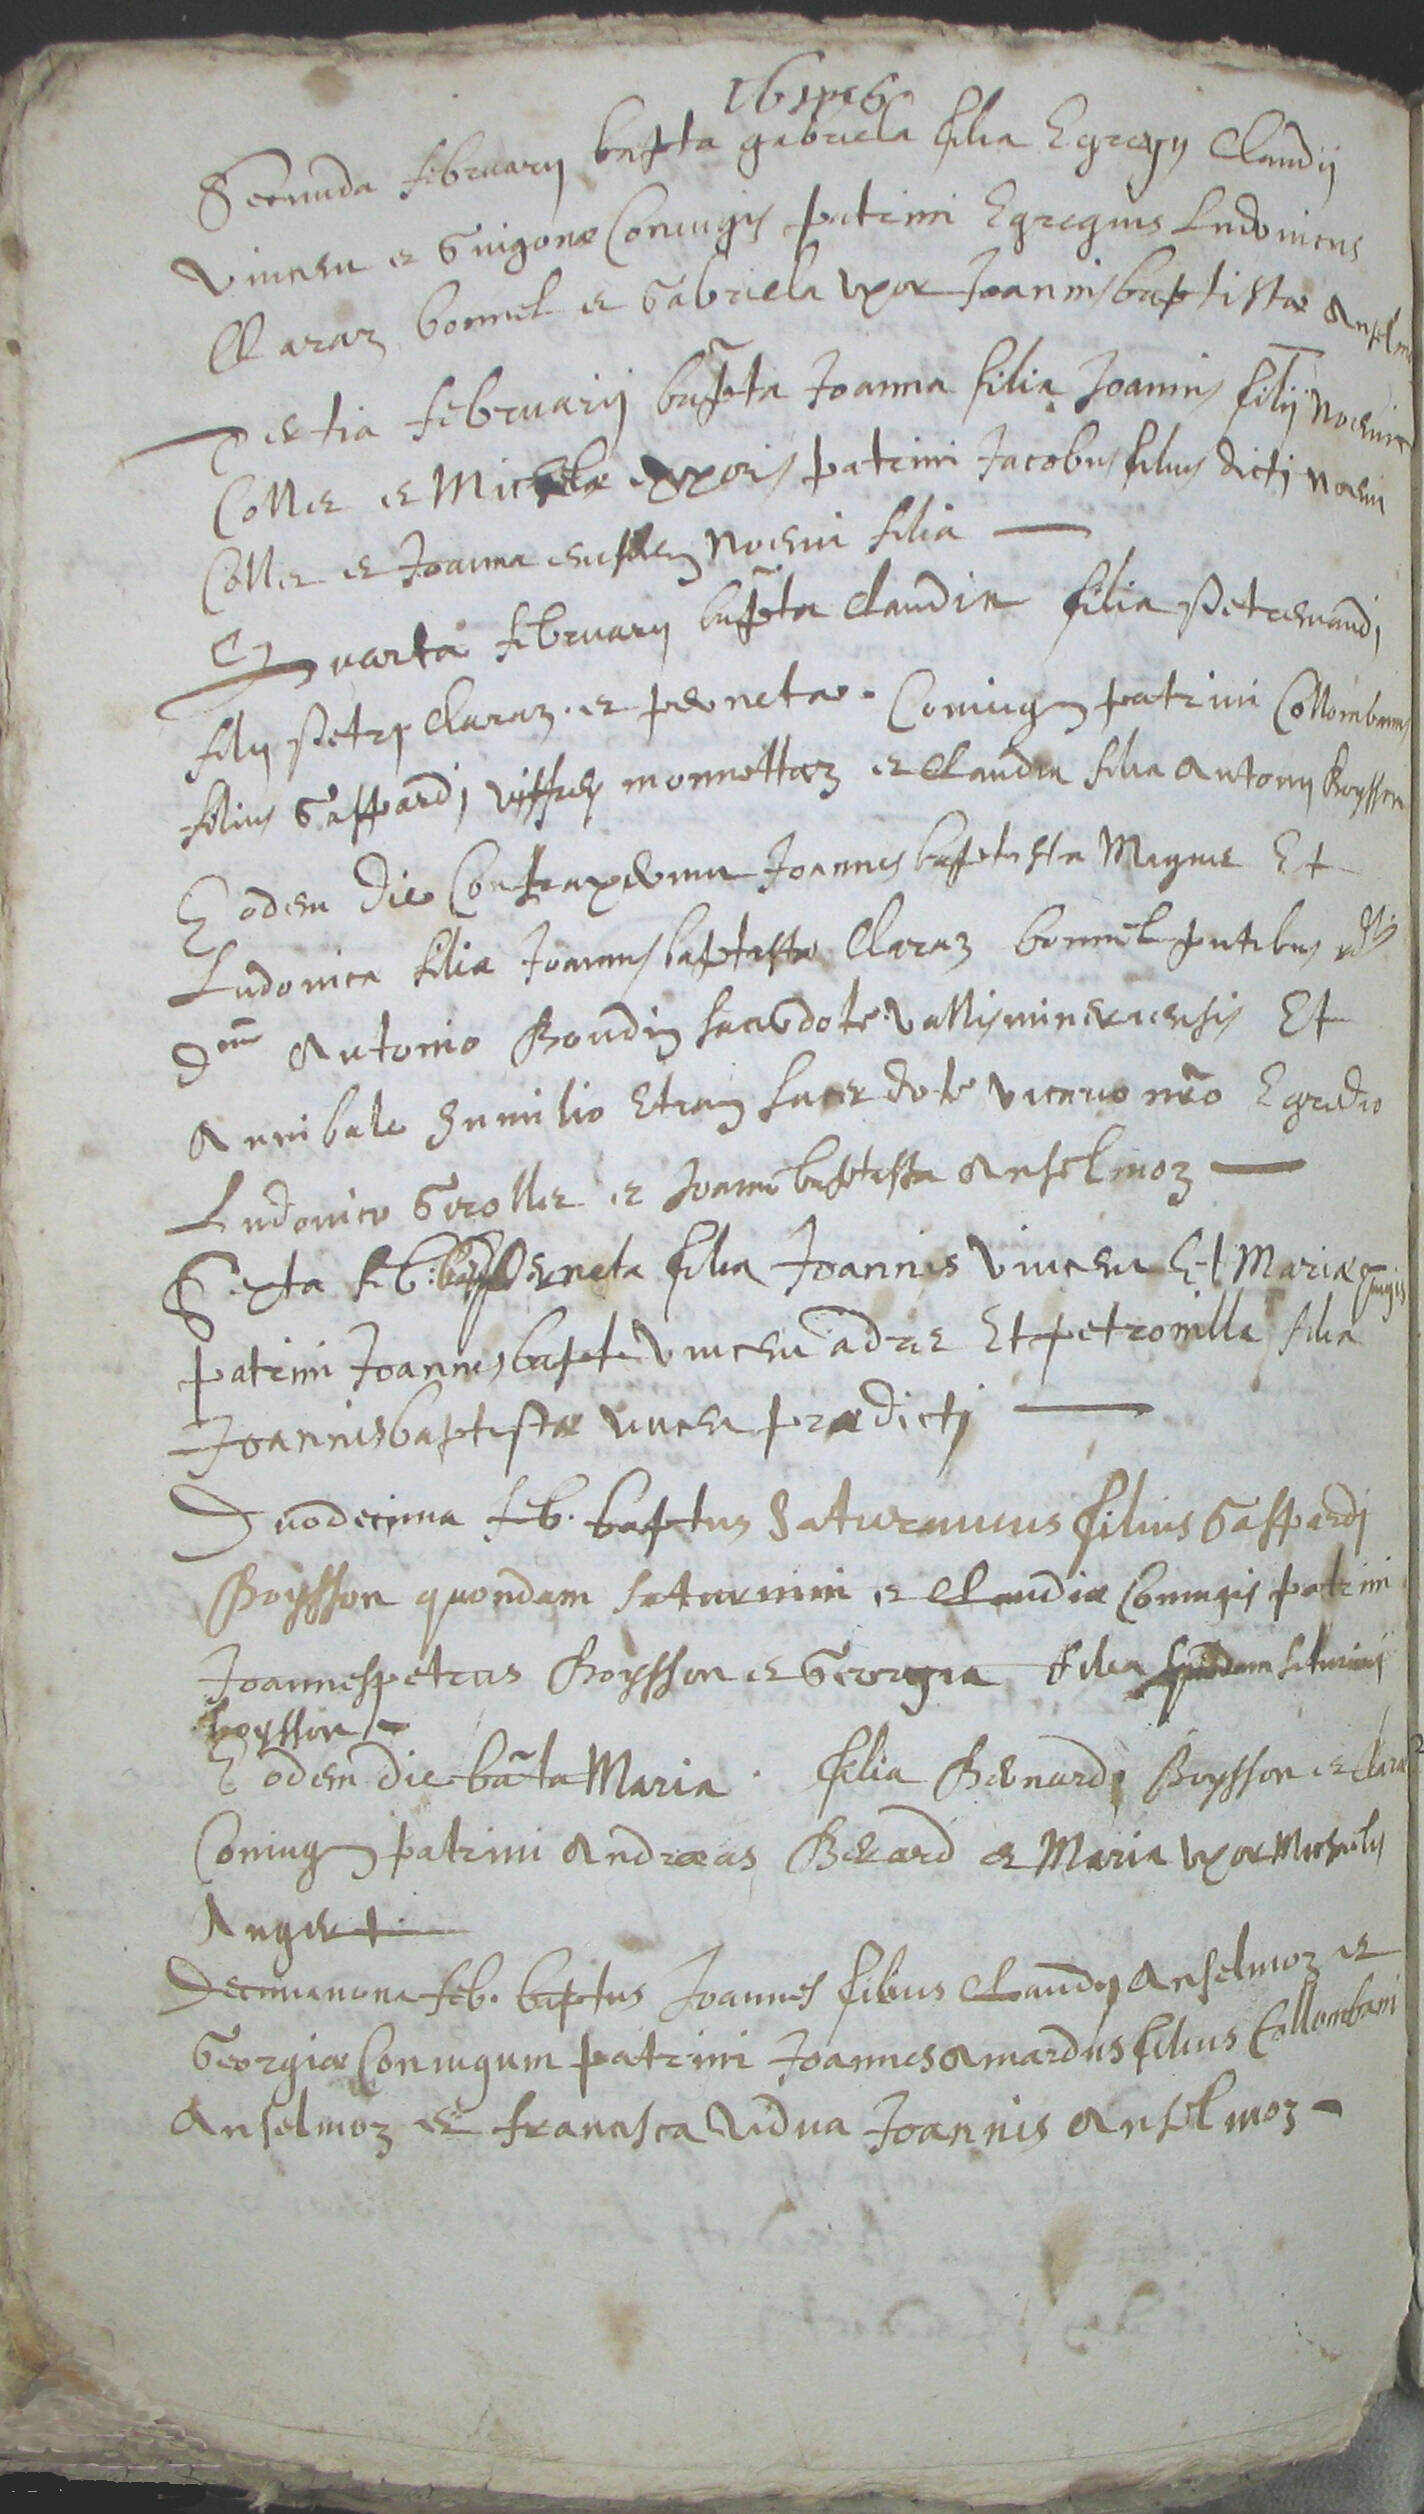 Secunda februarij bapta gabriela filia Egregij Claudij
Vincen et Guigonæ Coniugis patrini Egregius Ludovicus
Claraz bonnel et Gabriela uxor Joannisbaptistæ Anselmo
Tertia februarij bapta Joanna filia Joannis filij Noenir
Coller et Michelæ uxoris patrini Jacobus filius dicti Noeni
Coller et Joanna eiusdem Noeni filia
Quarta februarij bapta Claudia filia Petremandi
filij Petri Claraz et pernetæ Coniugum patrini Collombanus
filius Gaspardi monnettaz et Claudia filia Antonij Boysson
Eodem die Contraxerunt Joannesbaptista Et
Ludovica filia Joannisbaptistæ Claraz bonnel pntibus rdis
Dnis Antonio Boudin sacerdote Vallisminer Et
Annibale sacerdote vicario nro Egredio
Ludovico Groller et Joannebaptista Anselmoz
Sexta feb: Perneta filia Joannis Vincen Et Mariæ
patrini Joannesbapta Vincen Et petronilla filia
Joannisbaptistæ Vincen prædicti
Duodecima feb. baptus Saturninus filius Gaspardi
Boysson quondam saturnini et Claudiæ Coniugis patrini
Joannespetrus Boysson et Georgia filia quondam saturnini
boysson
Eodem die bata Maria filia Bernardi Boysson et Claræ
Coniugum patrini Andræas Berard et Maria uxor Michælis
Angert
Decimanona feb. baptus Joannes filius Claudij Anselmoz et
Georgiæ Coniugum patrini Joannesamardus filius Collombani
Anselmoz et francisca vidua Joannis Anselmoz